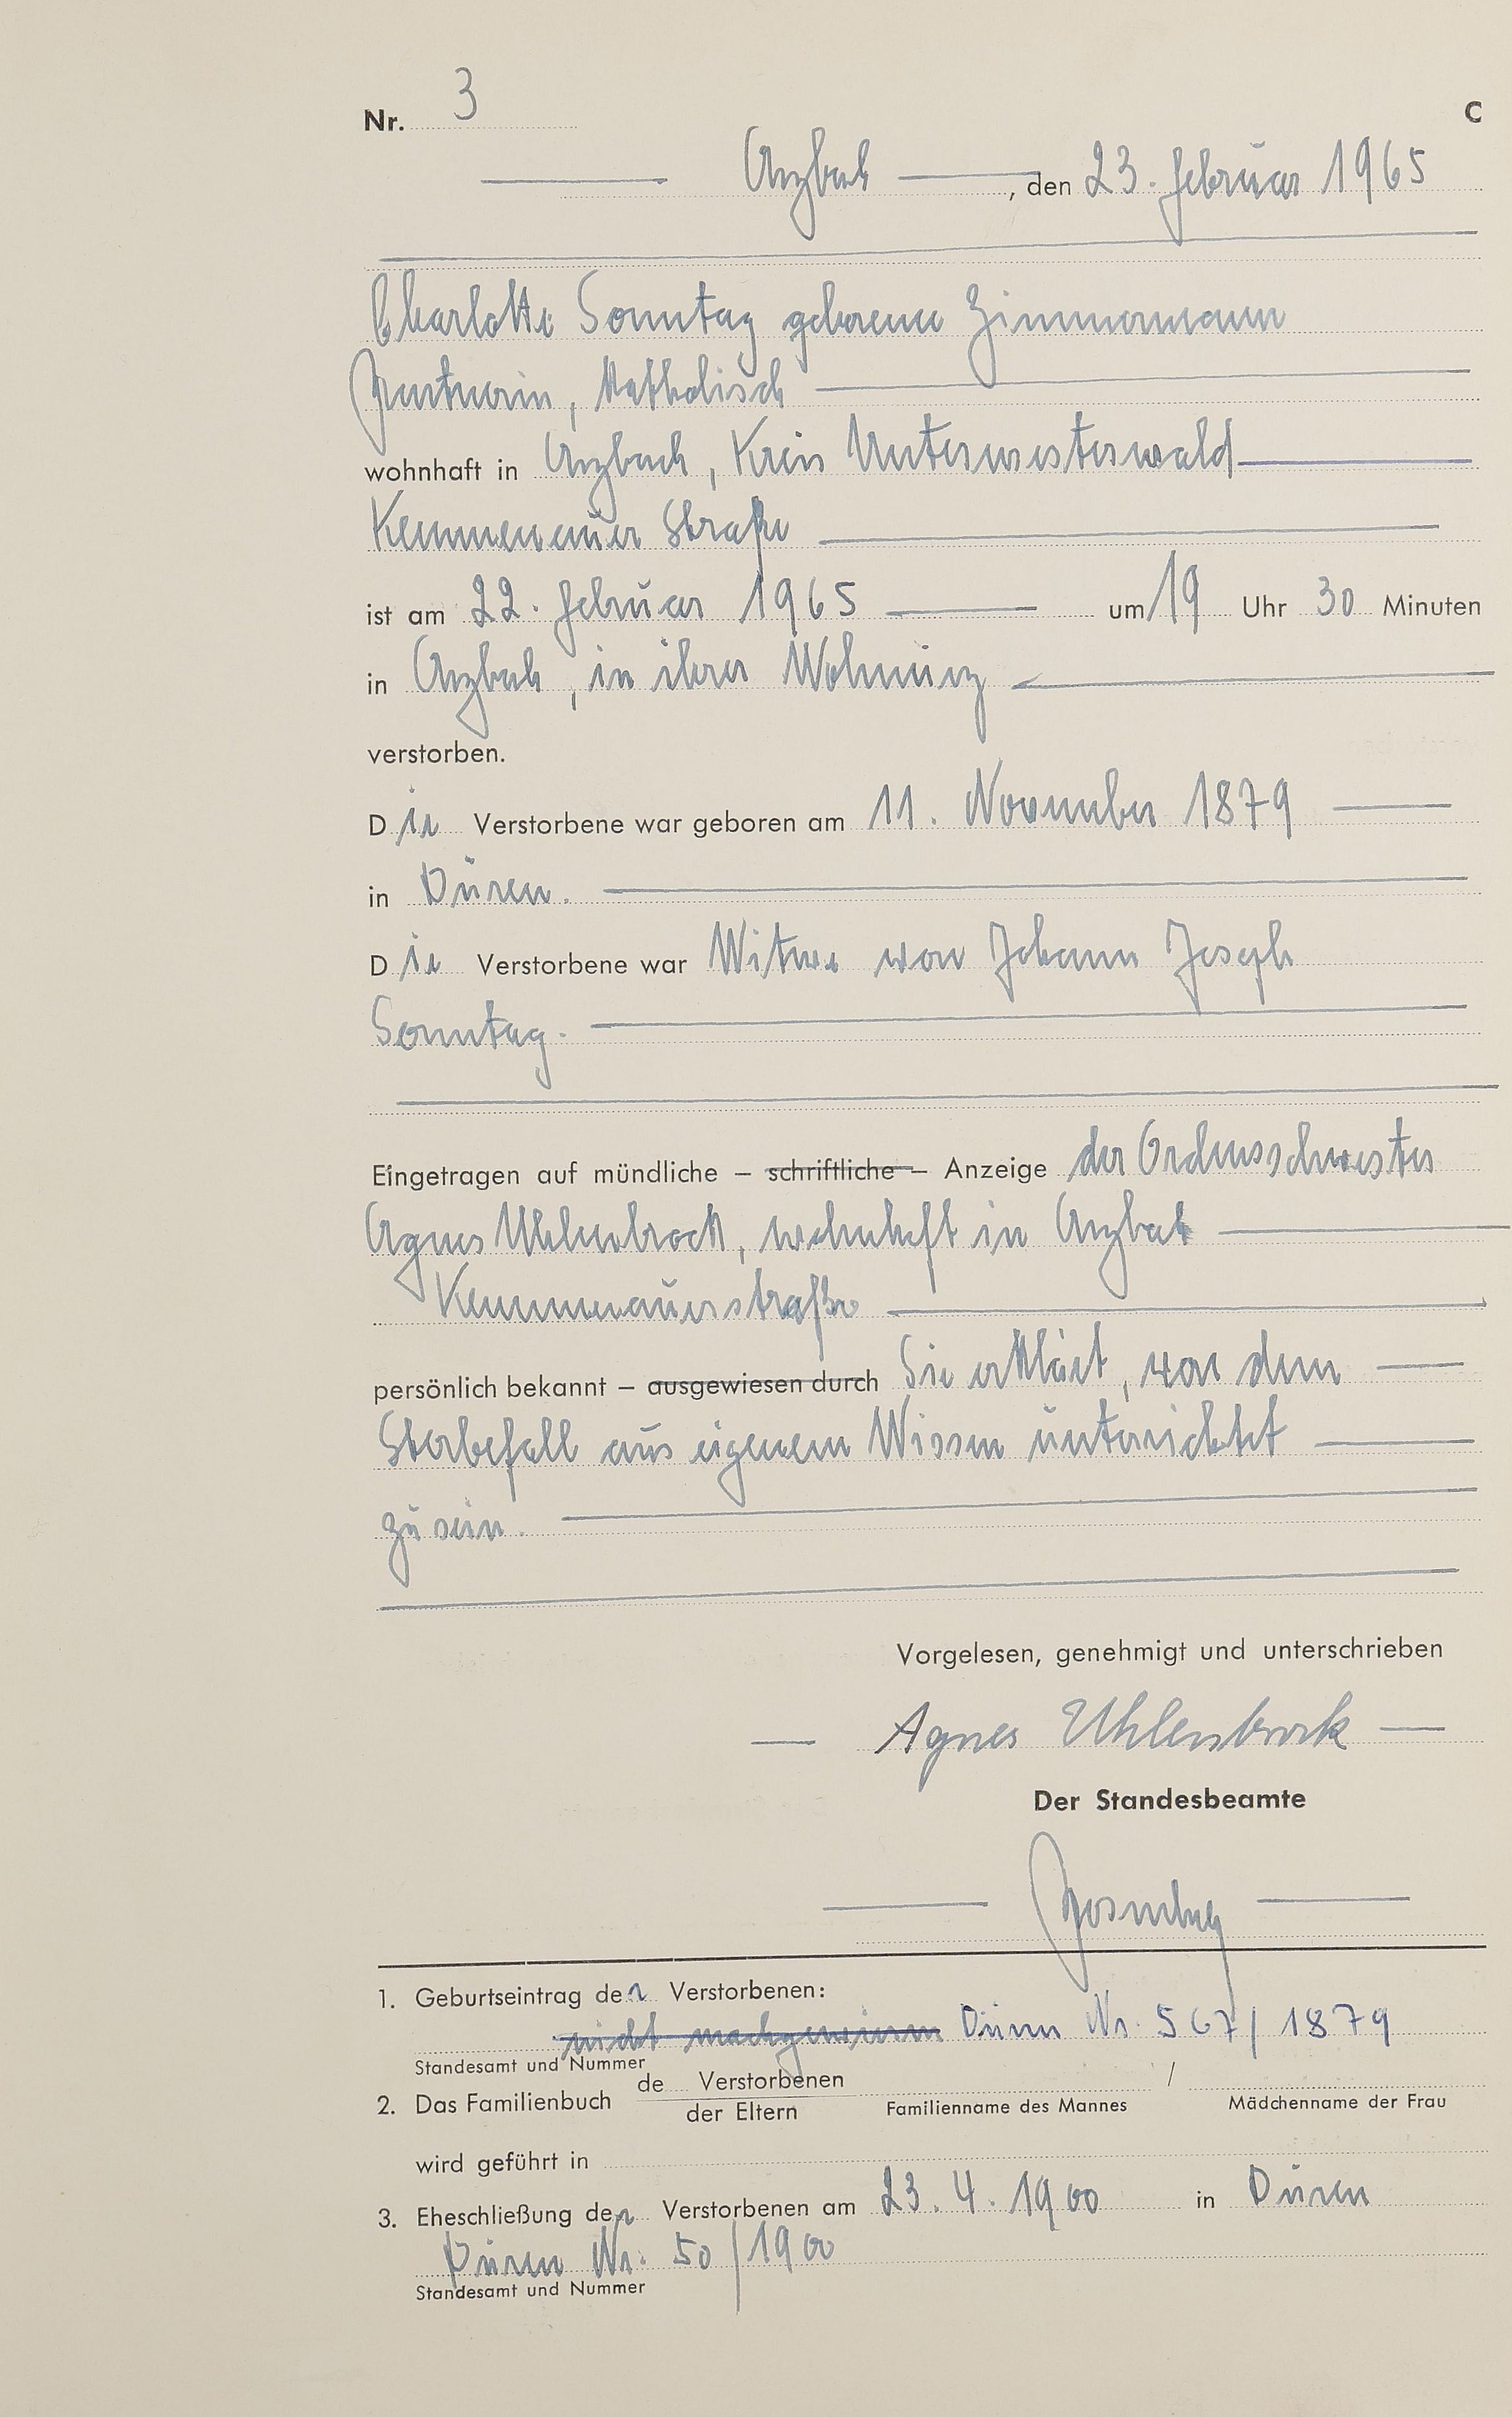 Nr. 3 C
Arzbach, den 23. Februar 1965
Charlotte Sonntag geborene Zimmermann
Rentnerin, katholisch
wohnhaft in Arzbach, Kreis Unterwesterwald
Kemmenauer Straße
ist am 22. Februar 1965 um 19 Uhr 30 Minuten
in Arzbach, in ihrer Wohnung
verstorben.
Die Verstorbene war geboren am 11. November 1879
in Düren.
Die Verstorbene war Witwe von Johann Joseph
Sonntag.
Eingetragen auf mündliche – schriftliche – Anzeige der Ordensschwester
Agnes Uhlenbrock, wohnhaft in Arzbach
Kemmenauerstraße
persönlich bekannt – ausgewiesen durch Sie erklärt, von dem
Sterbefall aus eigenem Wissen unterrichtet
zu sein.
Vorgelesen, genehmigt und unterschrieben
Agnes Uhlenbrock
Der Standesbeamte
1. Geburtseintrag der Verstorbenen:
nicht nachgewiesen Düren Nr. 567/1879
Standesamt und Nummer
2. Das Familienbuch de Verstorbenen /
der Eltern Familienname des Mannes Mädchenname der Frau
wird geführt in
3. Eheschließung der Verstorbenen am 23.4.1900 in Düren
Düren Nr. 50/1900
Standesamt und Nummer